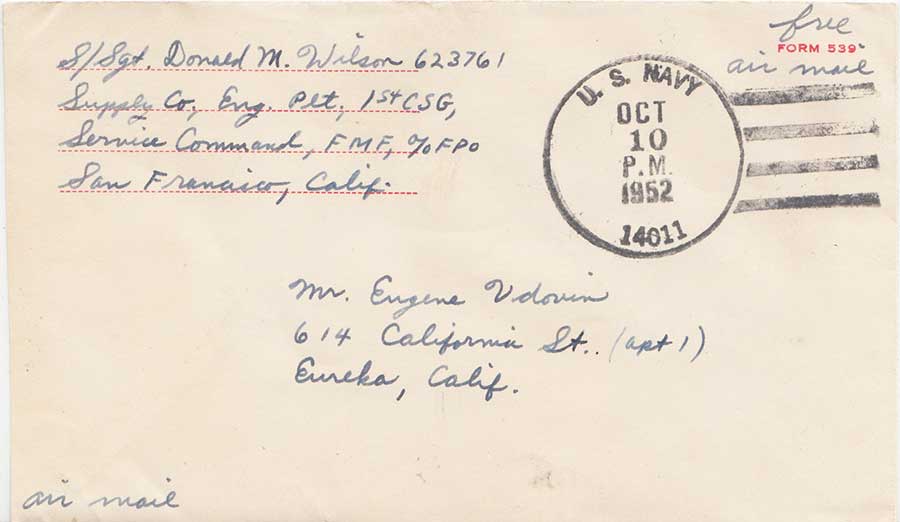 S/Sgt. Donald M. Wilson 623761
Supply Co, Eng. Plt, 1st CSG,
Service Command, FMF, c/o FPO
San Francisco, Calif.
free
FORM 539
air mail
U. S. NAVY
OCT
10
P.M.
1952
14011
Mr. Eugene Vdovin
614 California St.. (apt 1)
Eureka, Calif.
air mail